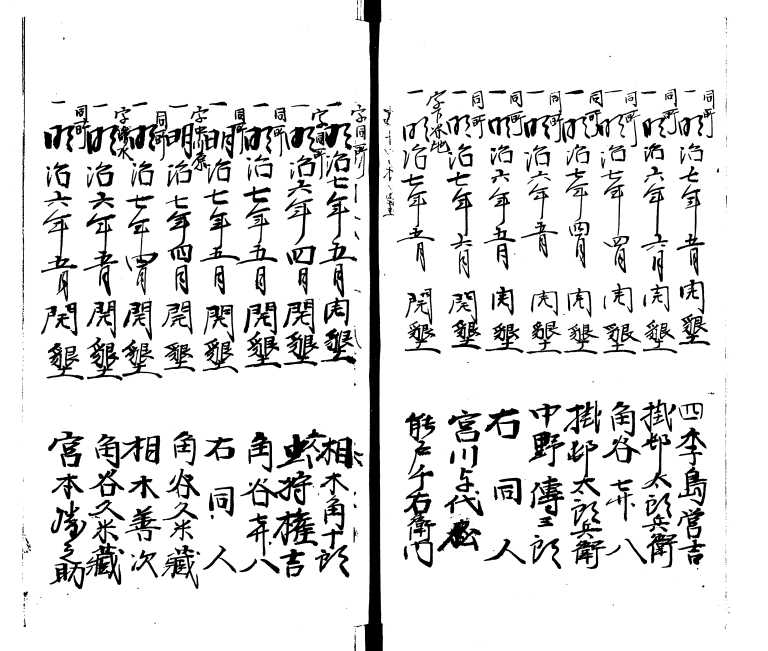 一同所
明治七年五月開墾
四李島営吉
一同所
明治六年六月開墾
掛邨太郎兵衛
一同所
明治七年四月開墾
角谷七八
一同所
明治七年四月開墾
掛邨太郎兵衛
一同所
明治六年五月開墾
中野傳三郎
一同所
明治六年五月開墾
右同人
一同所
明治七年六月開墾
宮川与代松
一字下
明治七年五月開墾
能戸千右衛門
一字同所
明治七年五月開墾
相木角十郎
一字同所
明治六年四月開墾
狩権吉
一同所
明治七年五月開墾
角谷八
一同所
明治七年五月開墾
右同人
一字
明治七年四月開墾
角谷久米藏
一同所
明治七年四月開墾
相木善次
一字水
明治六年五月開墾
角谷久米藏
一同所
明治六年五月開墾
宮本之助